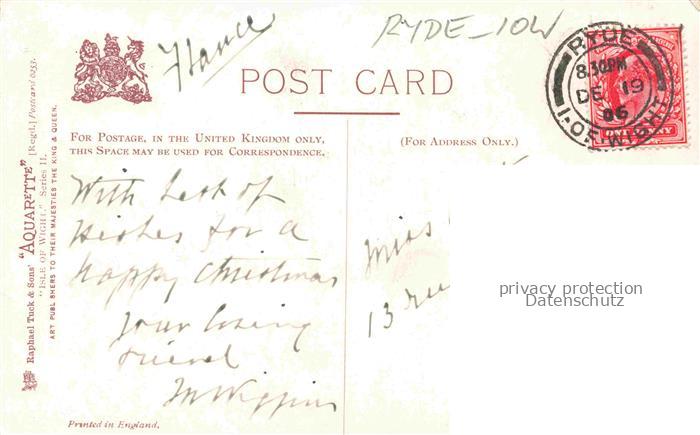 France
RYDE - IOW
POST CARD
RYDE
8.30PM
DE 19
06
I. OF. WIGHT
FOR POSTAGE, IN THE UNITED KINGDOM ONLY,
THIS SPACE MAY BE USED FOR CORRESPONDENCE.
(FOR ADDRESS ONLY.)
With best of
Wishes for a
happy Christmas
your loving
friend
M Wiggins
Miss
13 rue
privacy protection
Datenschutz
Raphael Tuck & Sons' "AQUARETTE" [Regd.] Postcard 6253.
"ISLE OF WIGHT." Series II.
ART PUBLISHERS TO THEIR MAJESTIES THE KING & QUEEN.
Printed in England.